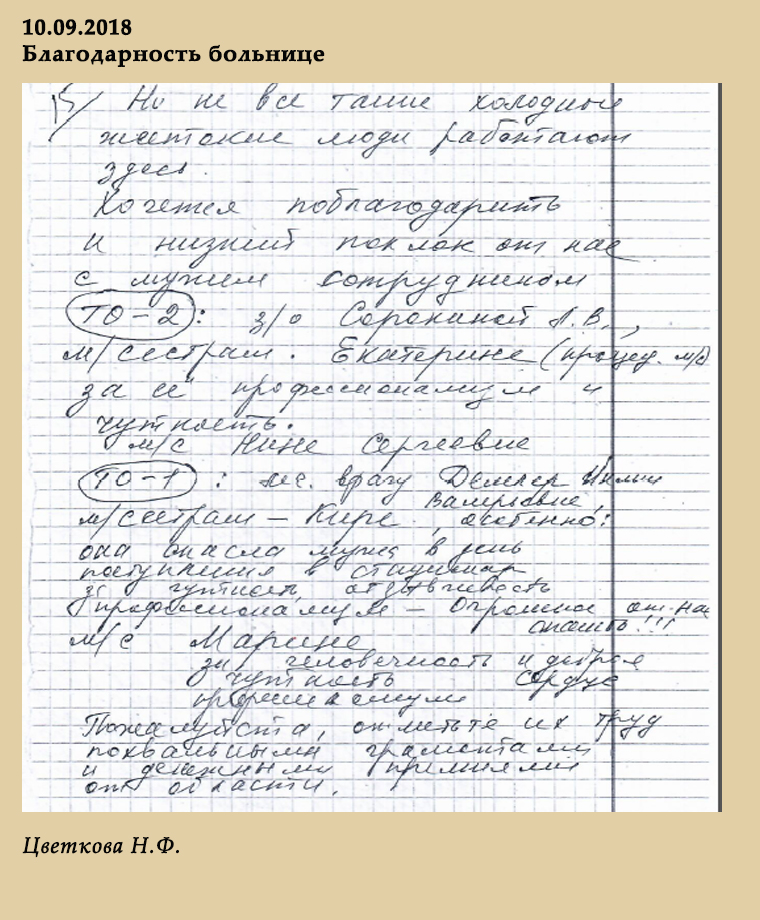 10.09.2018
Благодарность больнице
Но не все такие холодные
жестокие люди работают
здесь.
Хочется поблагодарить
и низкий поклон от нас
с мужем сотрудникам
ТО-2: з/о Сорокиной Л.В.,
м/сестрам. Екатерине (процед. м/с)
за её профессионализм и
чуткость.
м/с Нине Сергеевне
ТО-1: леч. врачу
Валерьевне,
м/сестрам – Кире, особенно:
она спасла мужа в день
поступления в стационар
за чуткость, отзывчивость
профессионализм – Огромное от нас
спасибо!!!
м/с Марине
за человечность и доброе
чуткость сердце
профессионализм
Пожалуйста, отметьте их труд
похвальными грамотами
и денежными премиями
от области.
Цветкова Н.Ф.